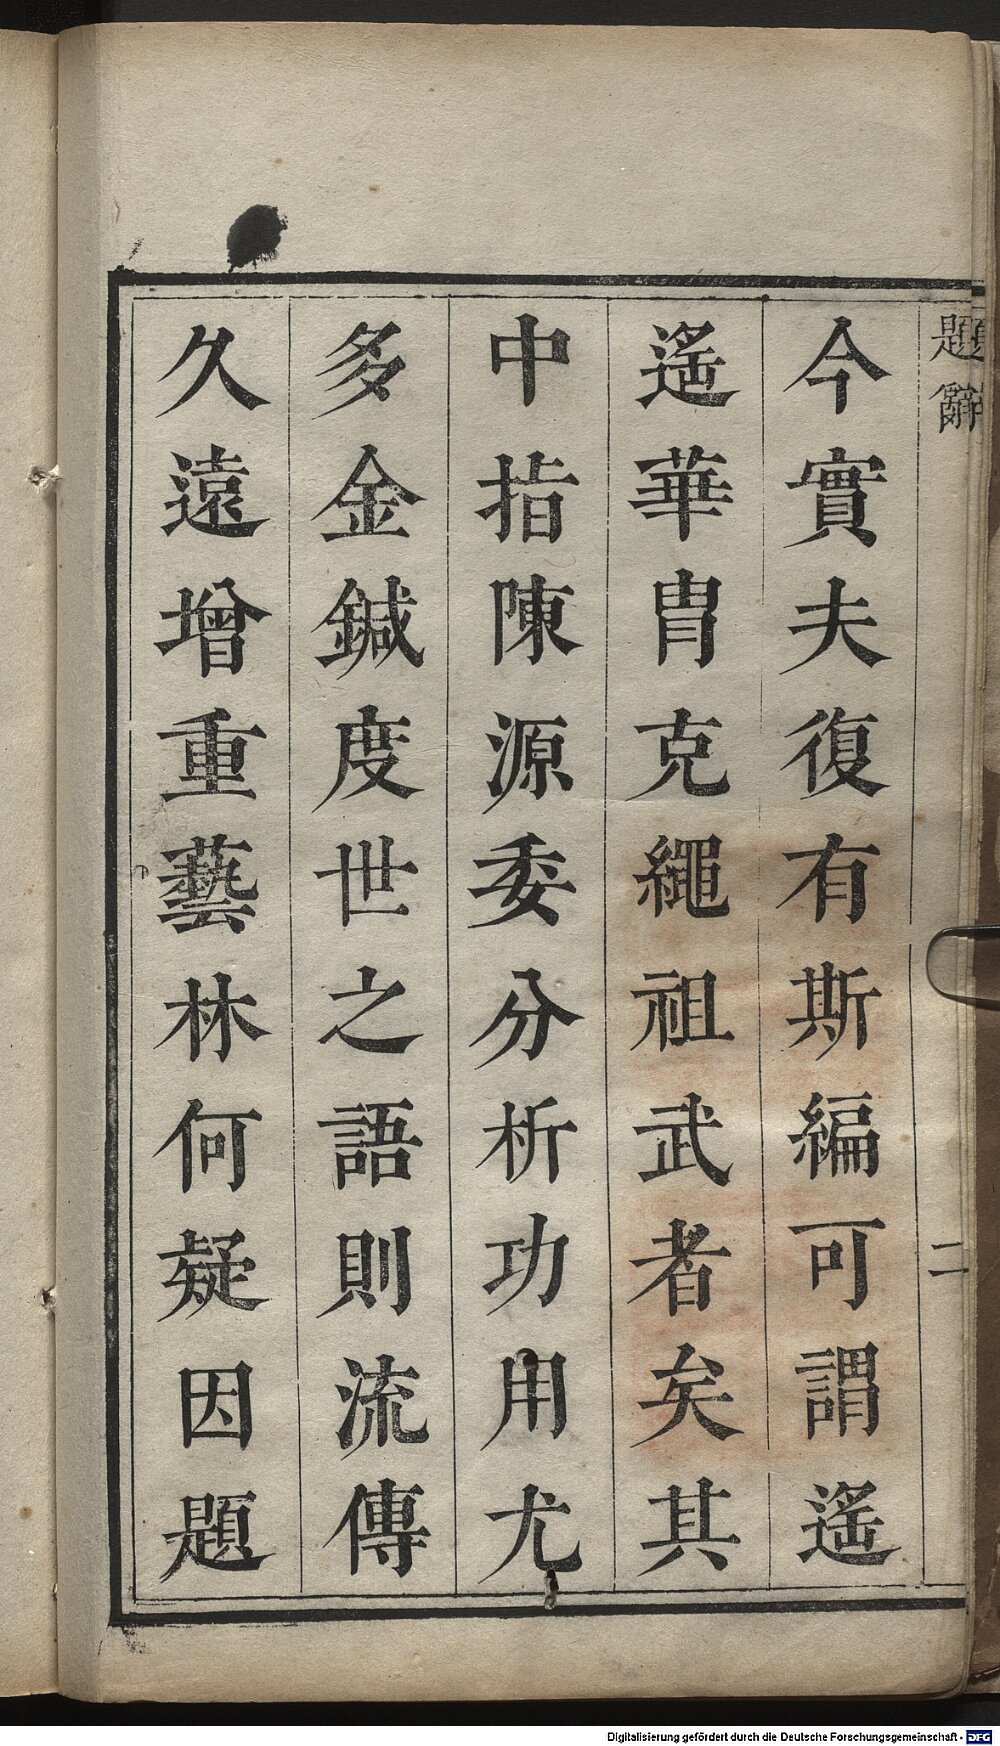 題辭
二
今實夫復有斯編可謂遙
遙華胄克繩祖武者矣其
中指陳源委分析功用尤
多金鍼度世之語則流傳
久遠增重藝林何疑因題
Digitalisierung gefördert durch die Deutsche Forschungsgemeinschaft - DFG